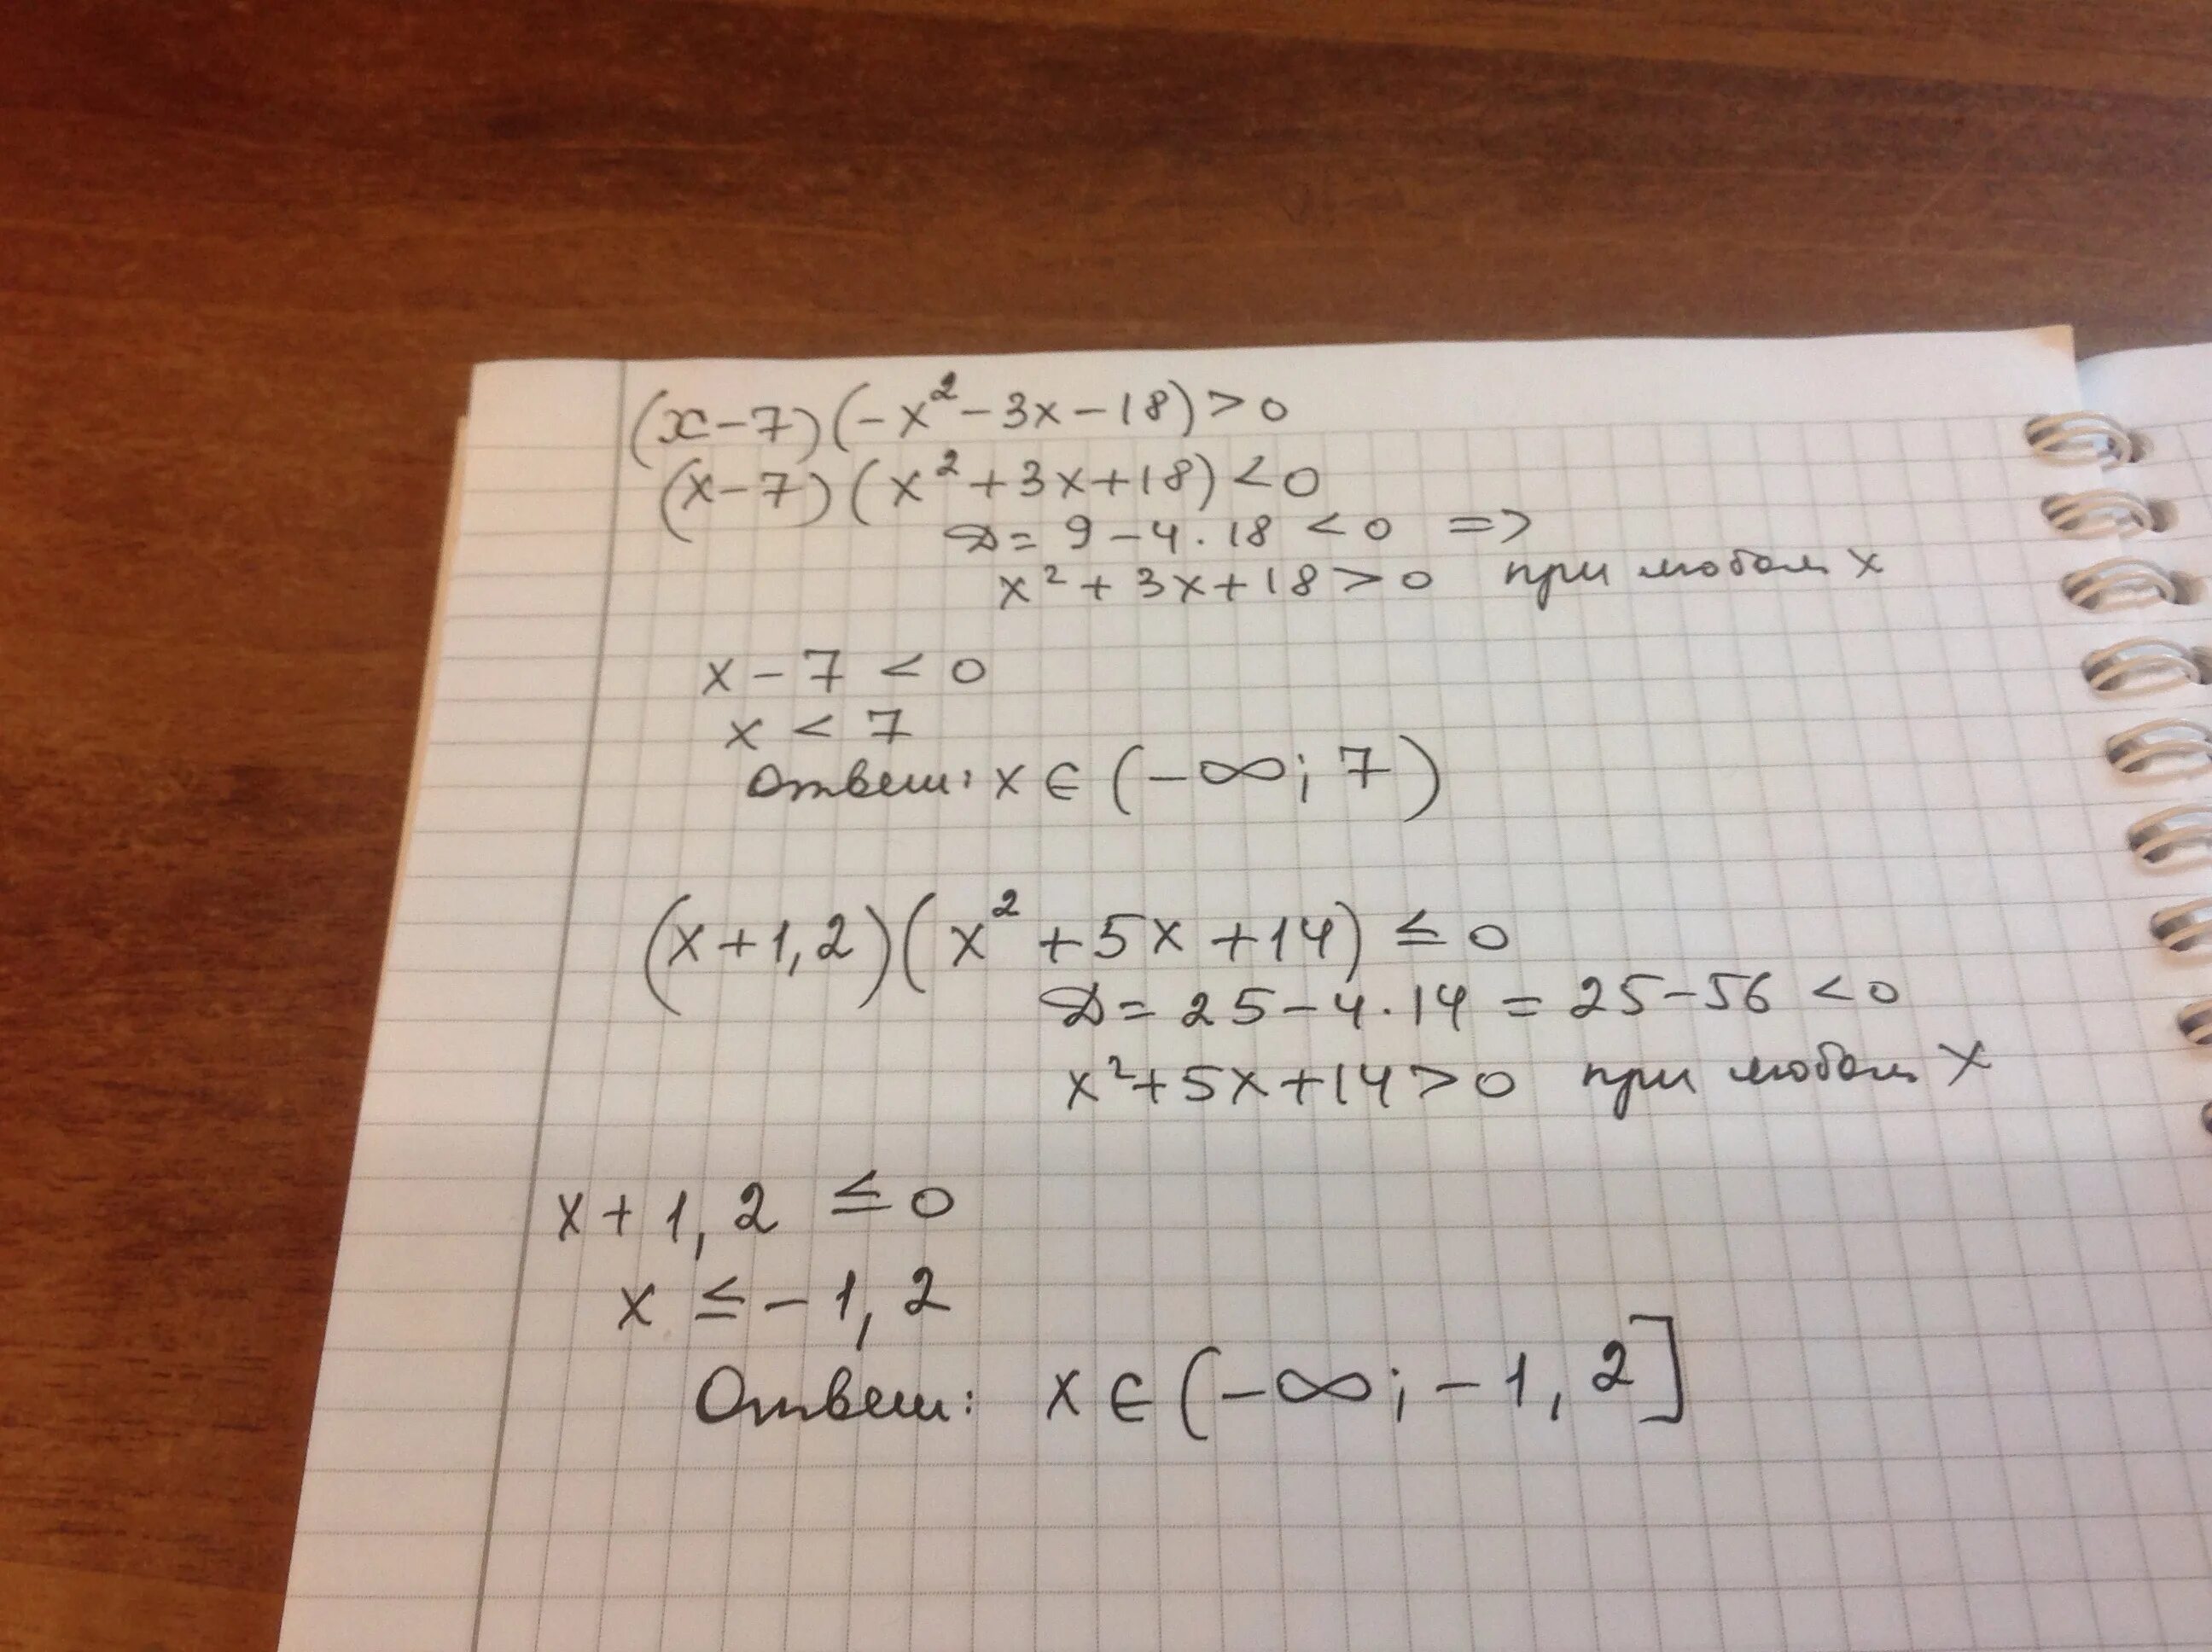 (x-7)(-x²-3x-18)>0
(x-7)(x²+3x+18)<0
D=9-4·18<0 =>
x²+3x+18>0 при любом x
x-7<0
x<7
Ответ: x∈(-∞;7)
(x+1,2)(x²+5x+14)≤0
D=25-4·14=25-56<0
x²+5x+14>0 при любом x
x+1,2≤0
x≤-1,2
Ответ: x∈(-∞;-1,2]